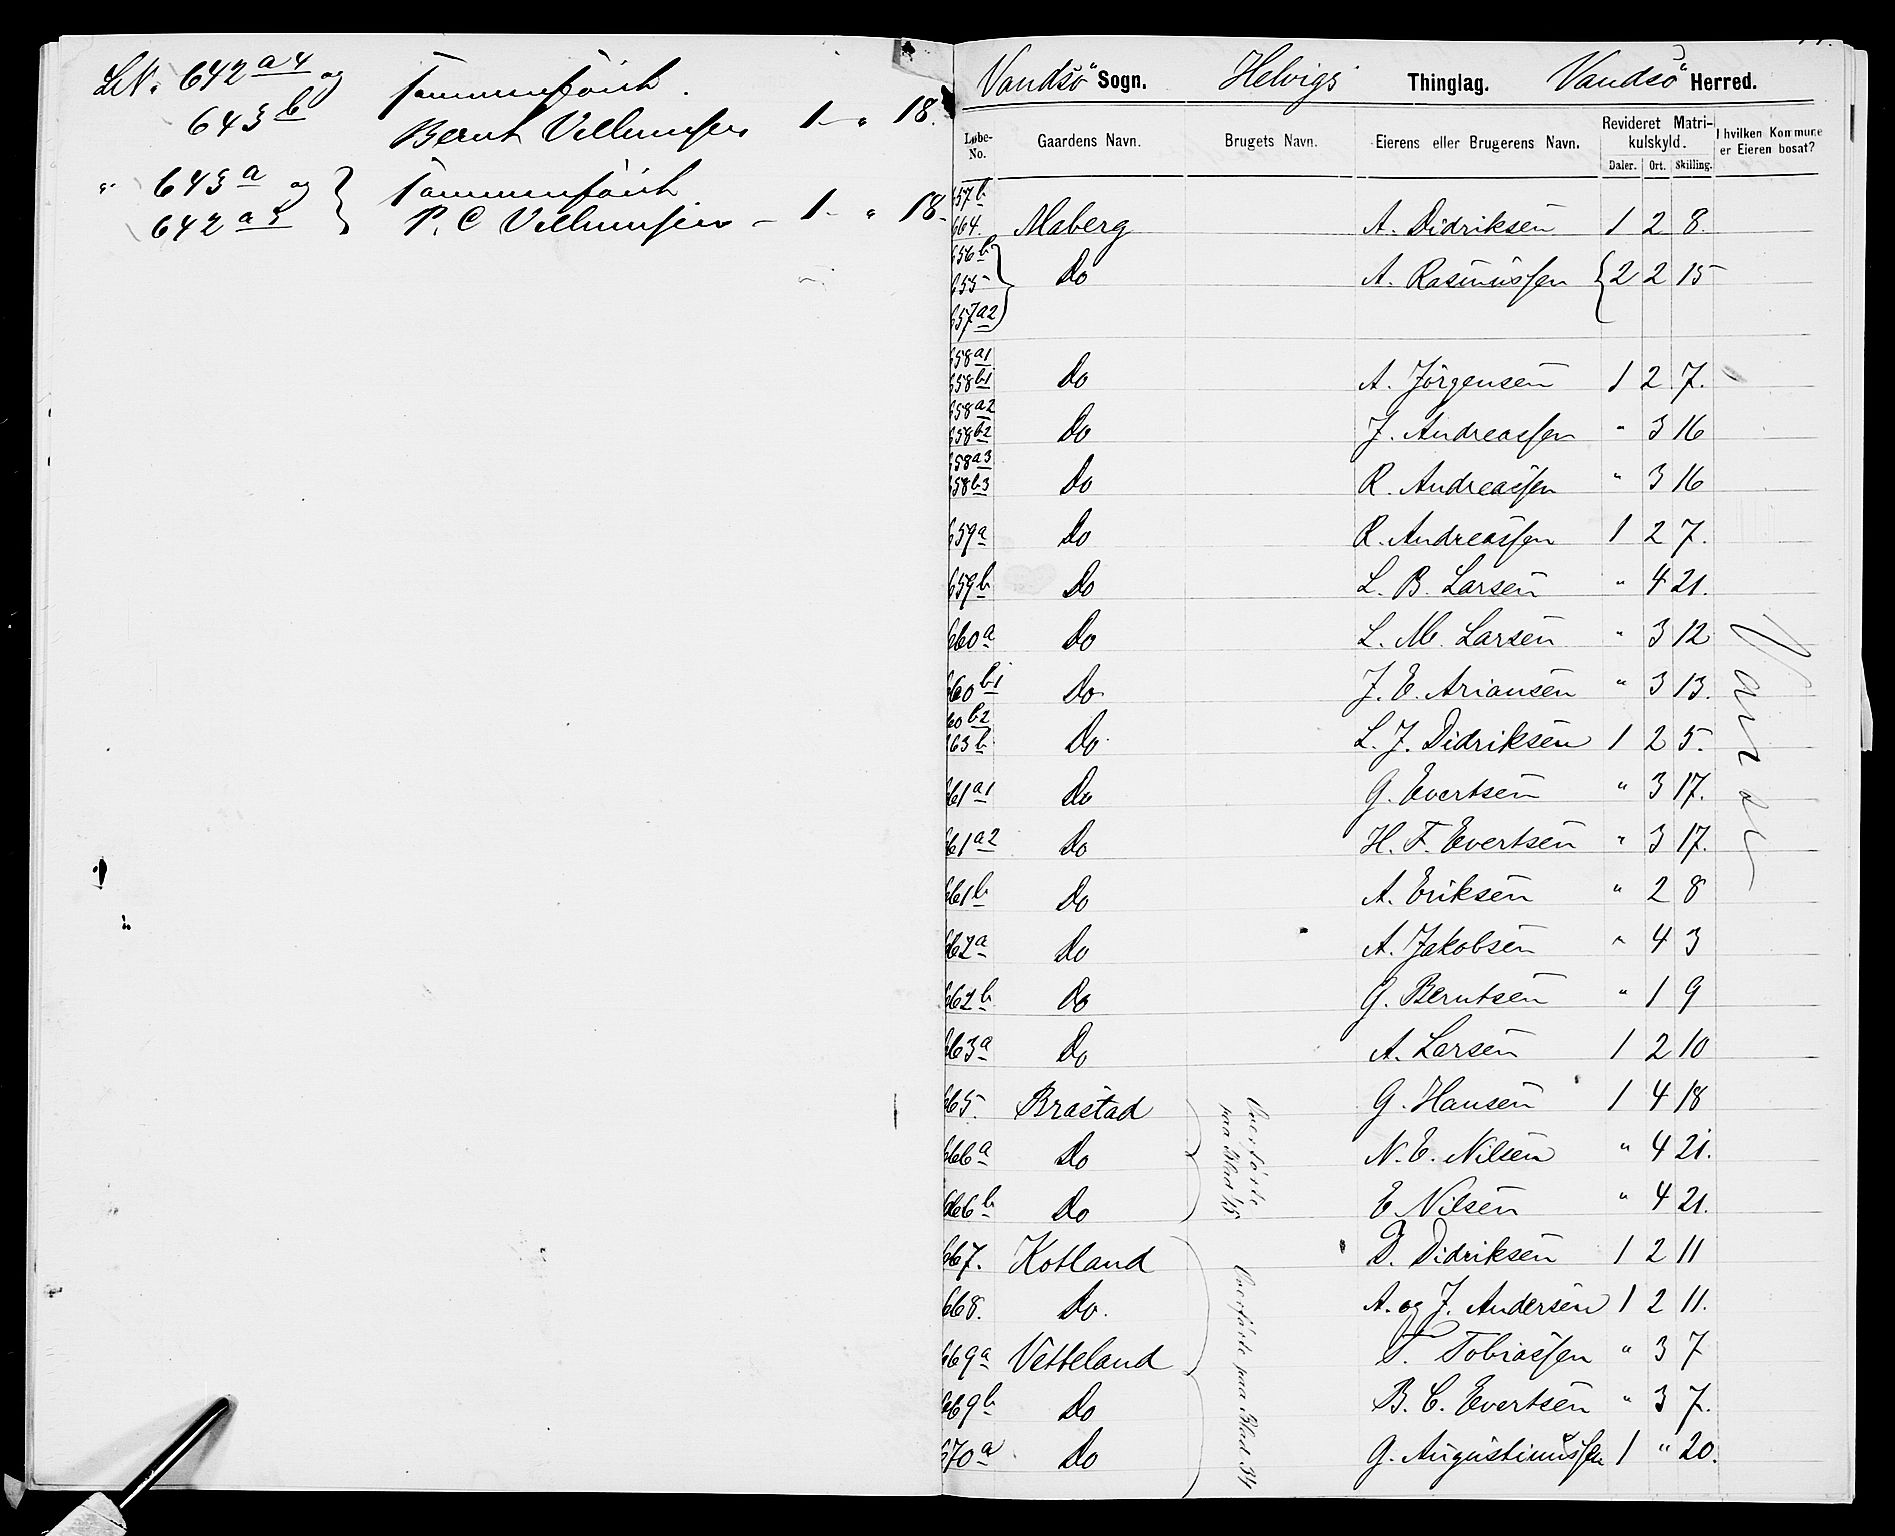 LN. 642 a4 og
643 b
Bernt Villumsen 1 " 18.
" 643 a og
642 a3
P. C Villumsen - 1 " 18.
Vandsö Sogn. Helvigs Thinglag. Vandsö Herred.
Løbe-No. Gaardens Navn. Brugets Navn. Eierens eller Brugerens Navn. Revideret Matrikulskyld. I hvilken Kommune er Eieren bosat?
Daler. Ort. Skilling.
657 b
664. Maberg A. Didriksen 1 2 8.
656 b
655 Do A. Rasmussen 2 2 15
657 a2
658 a1
658 b1 Do A. Jörgensen 1 2 7.
658 a2
658 b2 Do J. Andreassen " 3 16
658 a3
658 b3 Do R. Andreassen " 3 16
659 a Do R. Andreassen 1 2 7.
659 b Do L. B. Larsen " 4 21.
660 a Do L. M. Larsen " 3 12
660 b1 Do J. E. Ariansen " 3 13.
660 b2
663 b Do L. J. Didriksen 1 2 5.
661 a1 Do G. Evertsen " 3 17.
661 a2 Do H. F. Evertsen " 3 17.
661 b Do A. Eriksen " 2 8
662 a Do A. Jakobsen " 4 3
662 b Do G. Berntsen " 1 9
663 a Do A. Larsen 1 2 10
665. Brastad G. Hansen 1 4 18
666 a Do N. E. Nilsen " 4 21.
666 b Do E Nilsen " 4 21.
667. Kotland D. Didriksen 1 2 11
668. Do. A. og J. Andersen 1 2 11.
669 a Vetteland T. Tobiassen " 3 7
669 b Do B. C. Evertsen " 3 7.
670 a Do G. Augustinussen 1 " 20.
Overförte paa Blad
Overförte paa Blad 34
Vanse